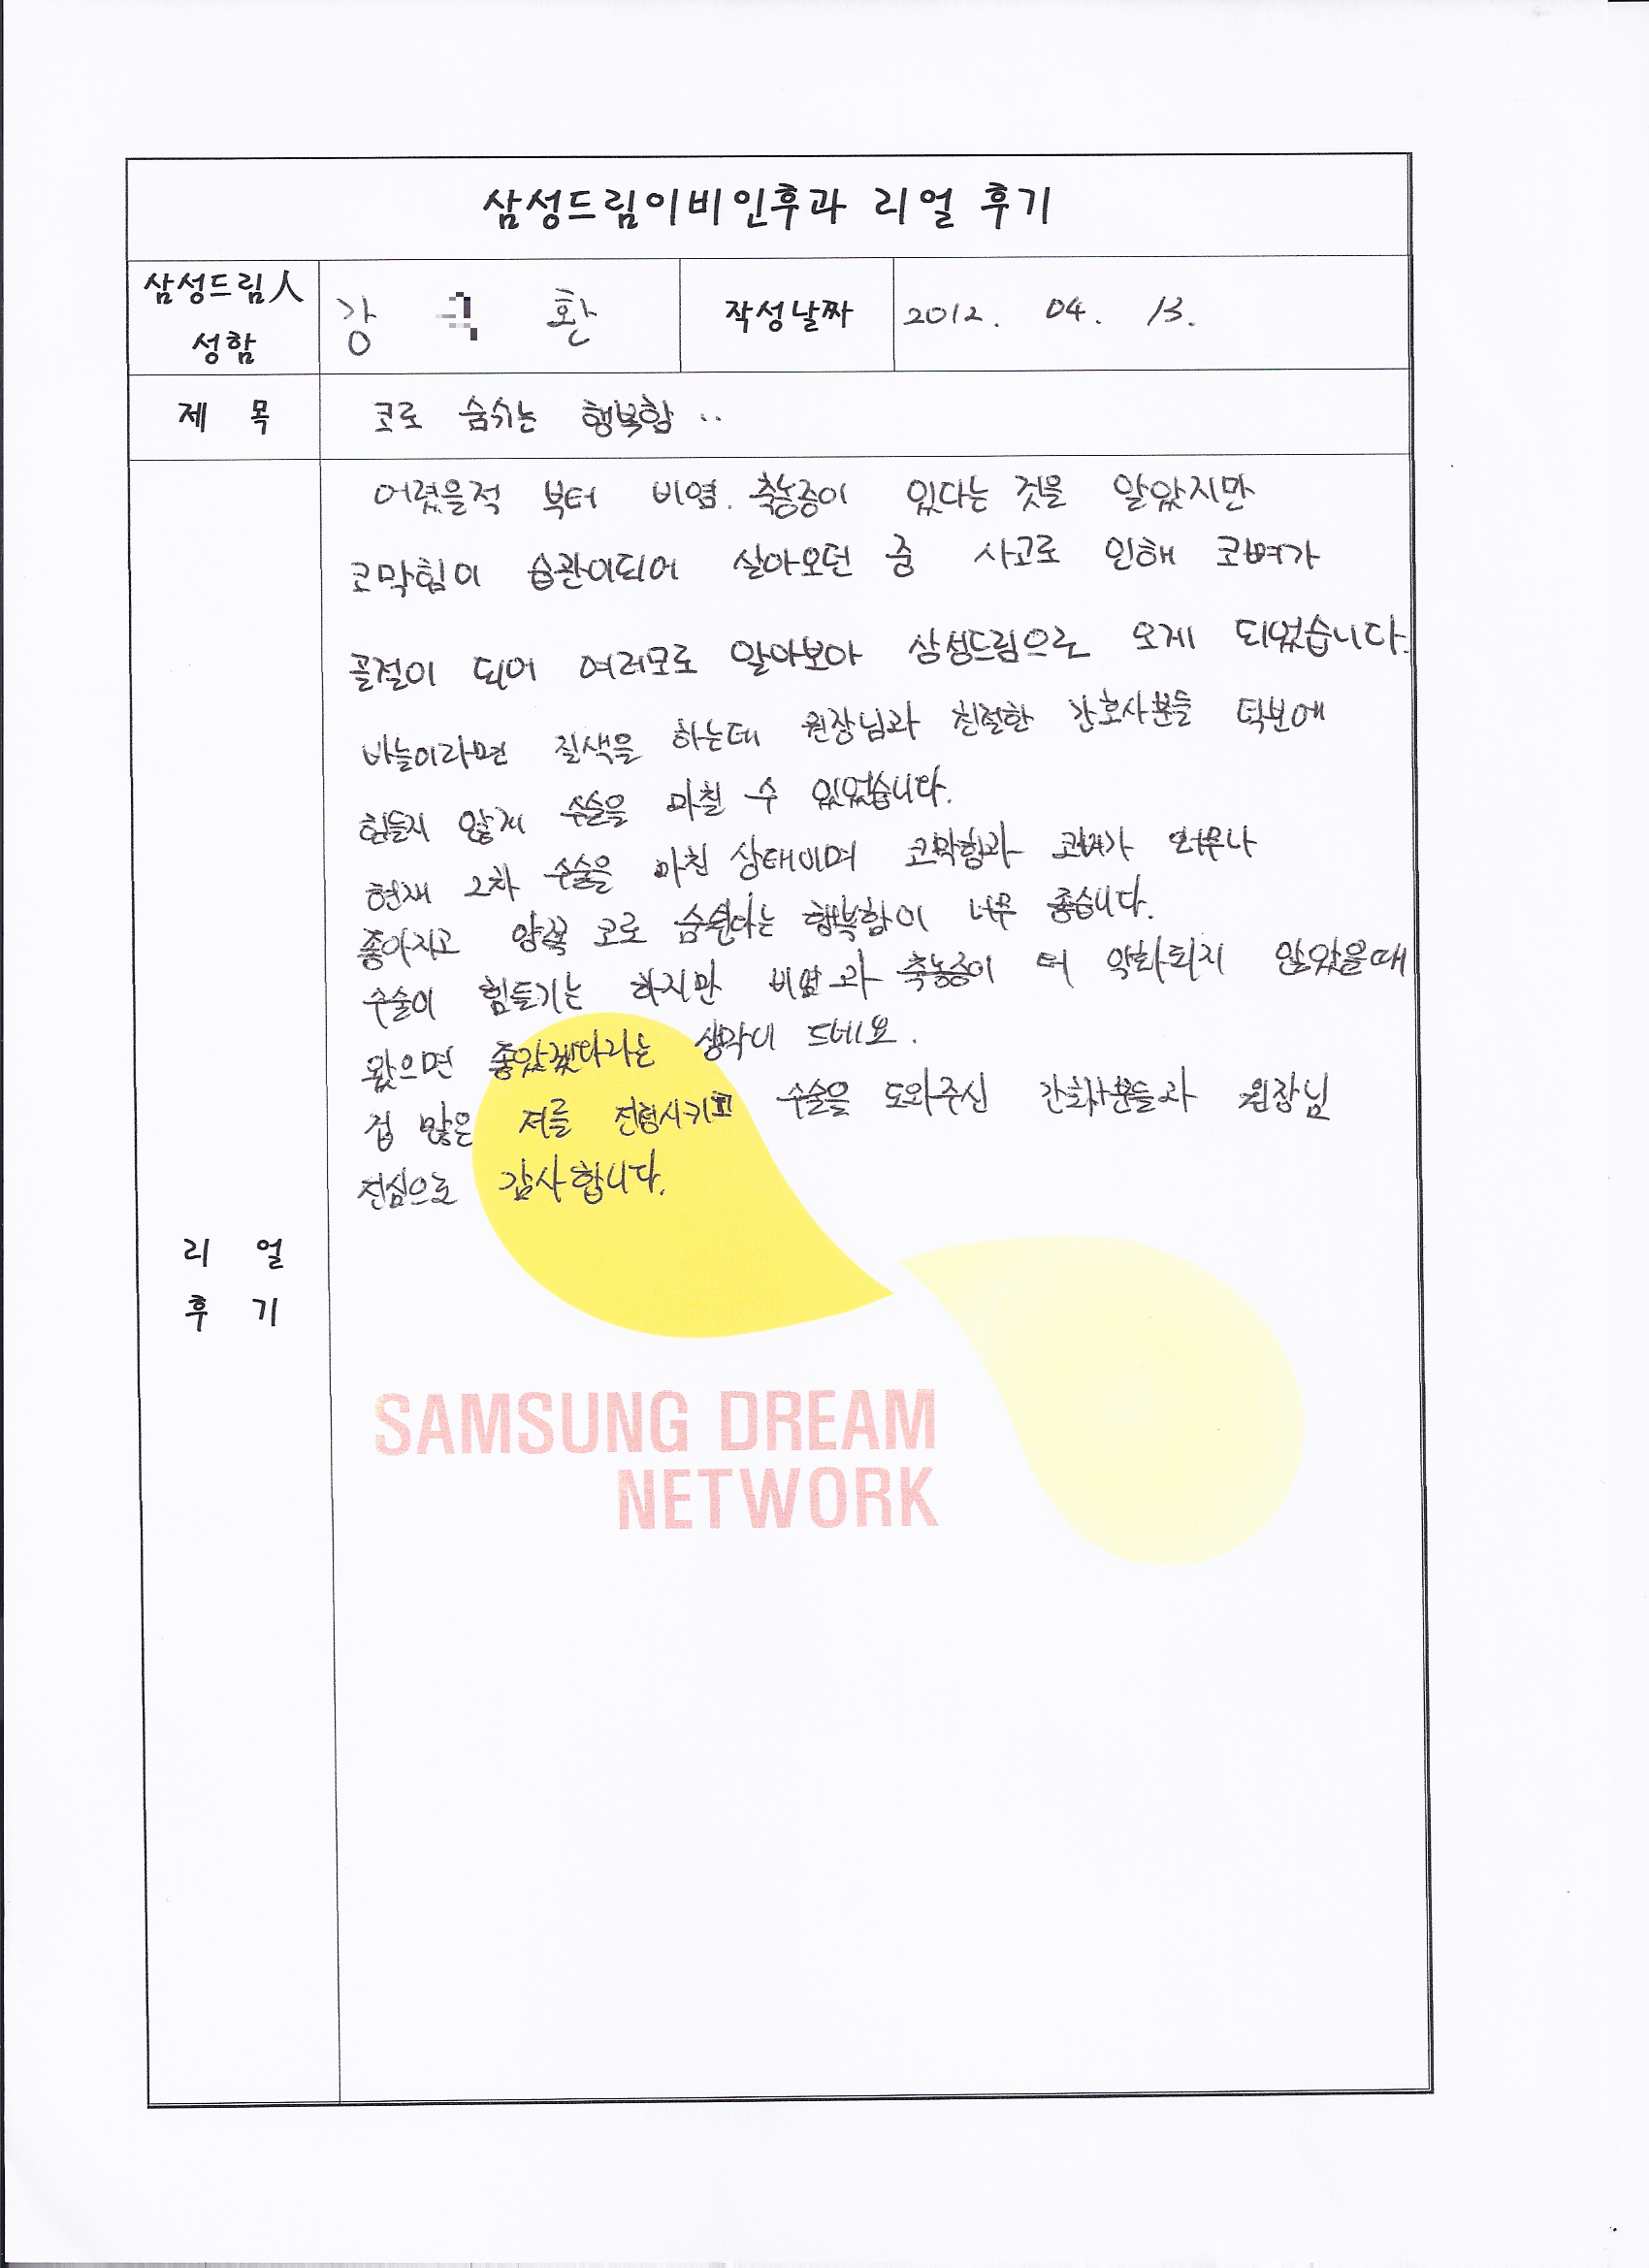 삼성드림이비인후과 리얼 후기
삼성드림人
성함
강 환
작성날짜
2012. 04. 13.
제 목
코로 숨쉬는 행복함 ..
어렸을적 부터 비염. 축농증이 있다는 것을 알았지만
코막힘이 습관이되어 살아오던 중 사고로 인해 코뼈가
골절이 되어 여러모로 알아보아 삼성드림으로 오게 되었습니다.
바늘이라면 질색을 하는데 원장님과 친절한 간호사분들 덕분에
힘들지 않게 수술을 마칠 수 있었습니다.
현재 2차 수술을 마친 상태이며 코막힘과 코뼈가 너무나
좋아지고 양쪽 코로 숨쉰다는 행복함이 너무 좋습니다.
수술이 힘들기는 하지만 비염과 축농증이 더 악화되지 않았을때
왔으면 좋았겠다라는 생각이 드네요.
겁 많은 저를 진정시키고 수술을 도와주신 간호사분들과 원장님
진심으로 감사합니다.
리 얼
후 기
SAMSUNG DREAM
NETWORK